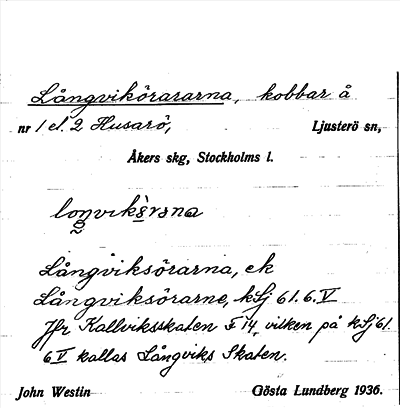 Långvikörararna, kobbar å
nr 1 el. 2 Husarö, Ljusterö sn,
Åkers skg, Stockholms l.
Långviksörarna, ek
Långviksörarne, kSj 61.6.V
Jfr Kallviksskaten F 14, vilken på kSj 61.
6 V kallas Långviks Skaten.
John Westin Gösta Lundberg 1936.